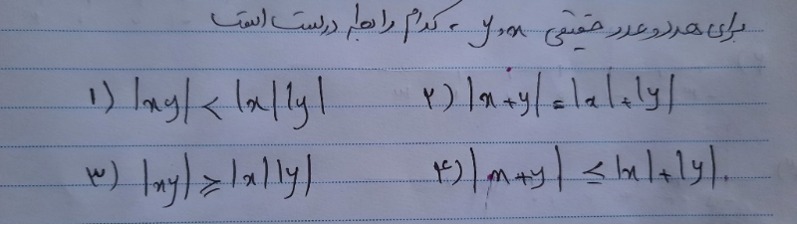 برای هر دو عدد حقیقی x و y ، کدام رابطه درست است
۱) |xy| < |x||y|    ۲) |x+y| = |x|+|y|
۳) |xy| ⩾ |x||y|    ۴) |x+y| ≤ |x|+|y|.